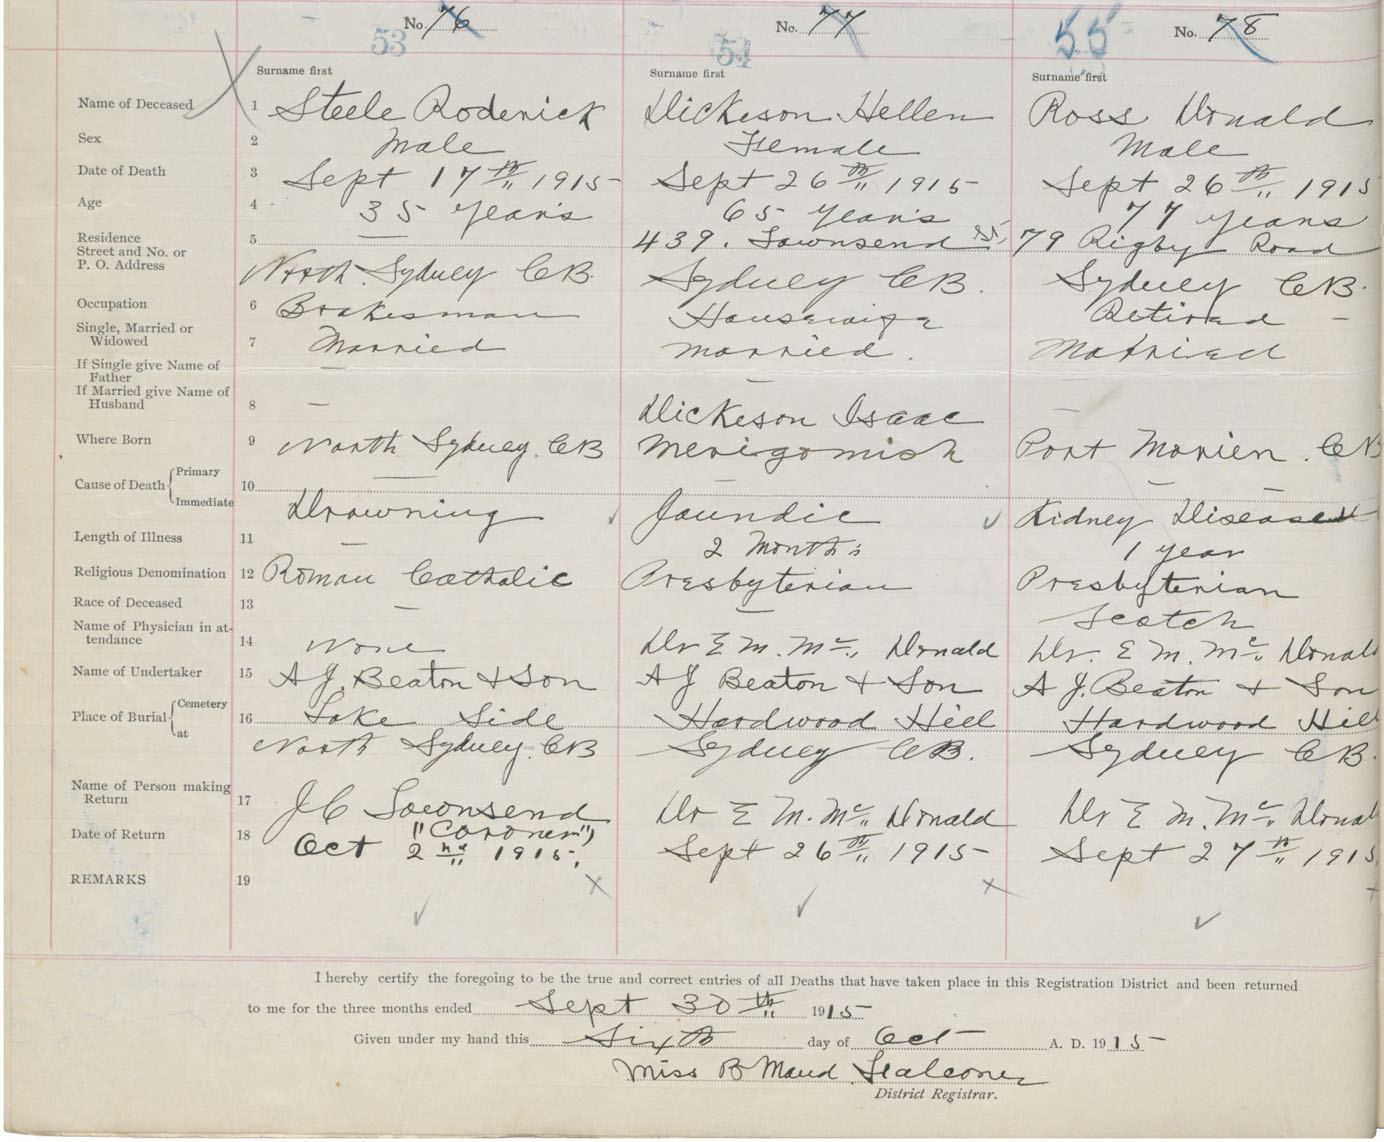 No. 76 No. 77 No. 78
53 54 55
Surname first Surname first Surname first
Name of Deceased 1 Steele Roderick Dickeson Hellen Ross Donald
Sex 2 Male Female Male
Date of Death 3 Sept 17th 1915 Sept 26th 1915 Sept 26th 1915
Age 4 35 Years 65 Years 77 years
Residence
Street and No. or 5 439. Townsend St, 79 Rigby Road
P. O. Address North Sydney CB. Sydney CB. Sydney CB.
Occupation 6 Brakesman Housewife Retired
Single, Married or
Widowed 7 Married married. Married
If Single give Name of
Father
If Married give Name of
Husband 8 — Dickeson Isaac —
Where Born 9 North Sydney. CB Merigomish Port Morien. CB
Cause of Death { Primary 10 — — —
Immediate Drowning Jaundic Kidney Disease
Length of Illness 11 — 2 Months 1 year
Religious Denomination 12 Roman Catholic Presbyterian Presbyterian
Race of Deceased 13 — — Scotch
Name of Physician in at-
tendance 14 None Dr E M. Mc Donald Dr. E M. Mc Donald
Name of Undertaker 15 A J. Beaton & Son A J Beaton & Son A J. Beaton & Son
Place of Burial { Cemetery 16 Lake Side Hardwood Hill Hardwood Hill
at North Sydney. CB Sydney CB. Sydney CB.
Name of Person making
Return 17 J C Townsend Dr E M. Mc Donald Dr E M. Mc Donald
"(Coroner")
Date of Return 18 Oct 2nd 1915, Sept 26th 1915 Sept 27th 1915
REMARKS 19
I hereby certify the foregoing to be the true and correct entries of all Deaths that have taken place in this Registration District and been returned
to me for the three months ended Sept 30th 1915
Given under my hand this Sixth day of Oct A. D. 1915
Miss B Maud Falconer
District Registrar.